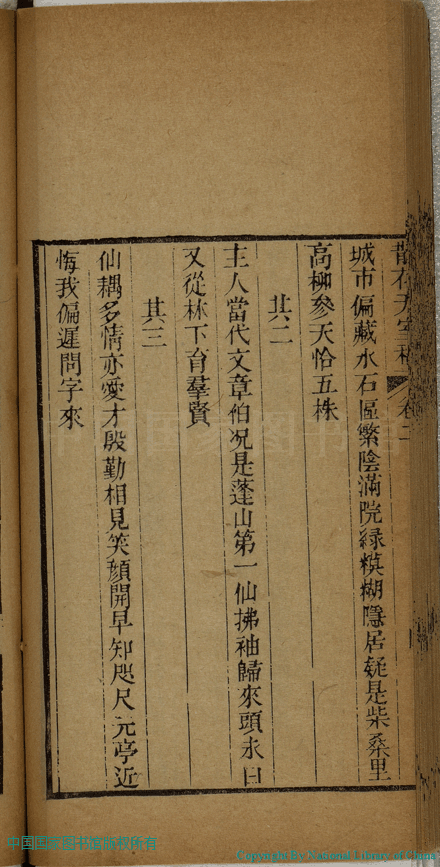 城市偏藏水石區繁陰滿院緑模糊隱居疑是柴桑里
高柳參天恰五株
其二
主人當代文章伯况是蓬山第一仙拂袖歸來頭未白
又從林下育羣賢
其三
仙耦多情亦愛才殷勤相見笑顔開早知咫尺元亭近
悔我偏遲問字來
卷二
Copyright By National Library of China